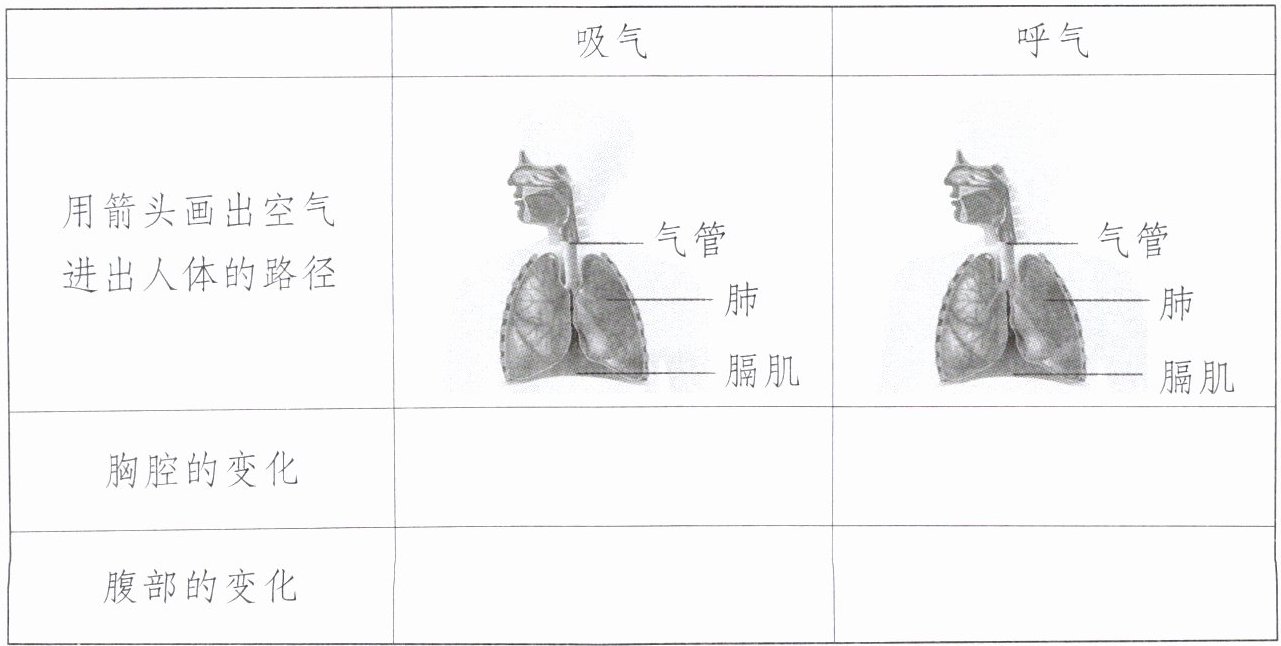 吸气
呼气
用箭头画出空气
进出人体的路径
气管
肺
膈肌
气管
肺
膈肌
胸腔的变化
腹部的变化